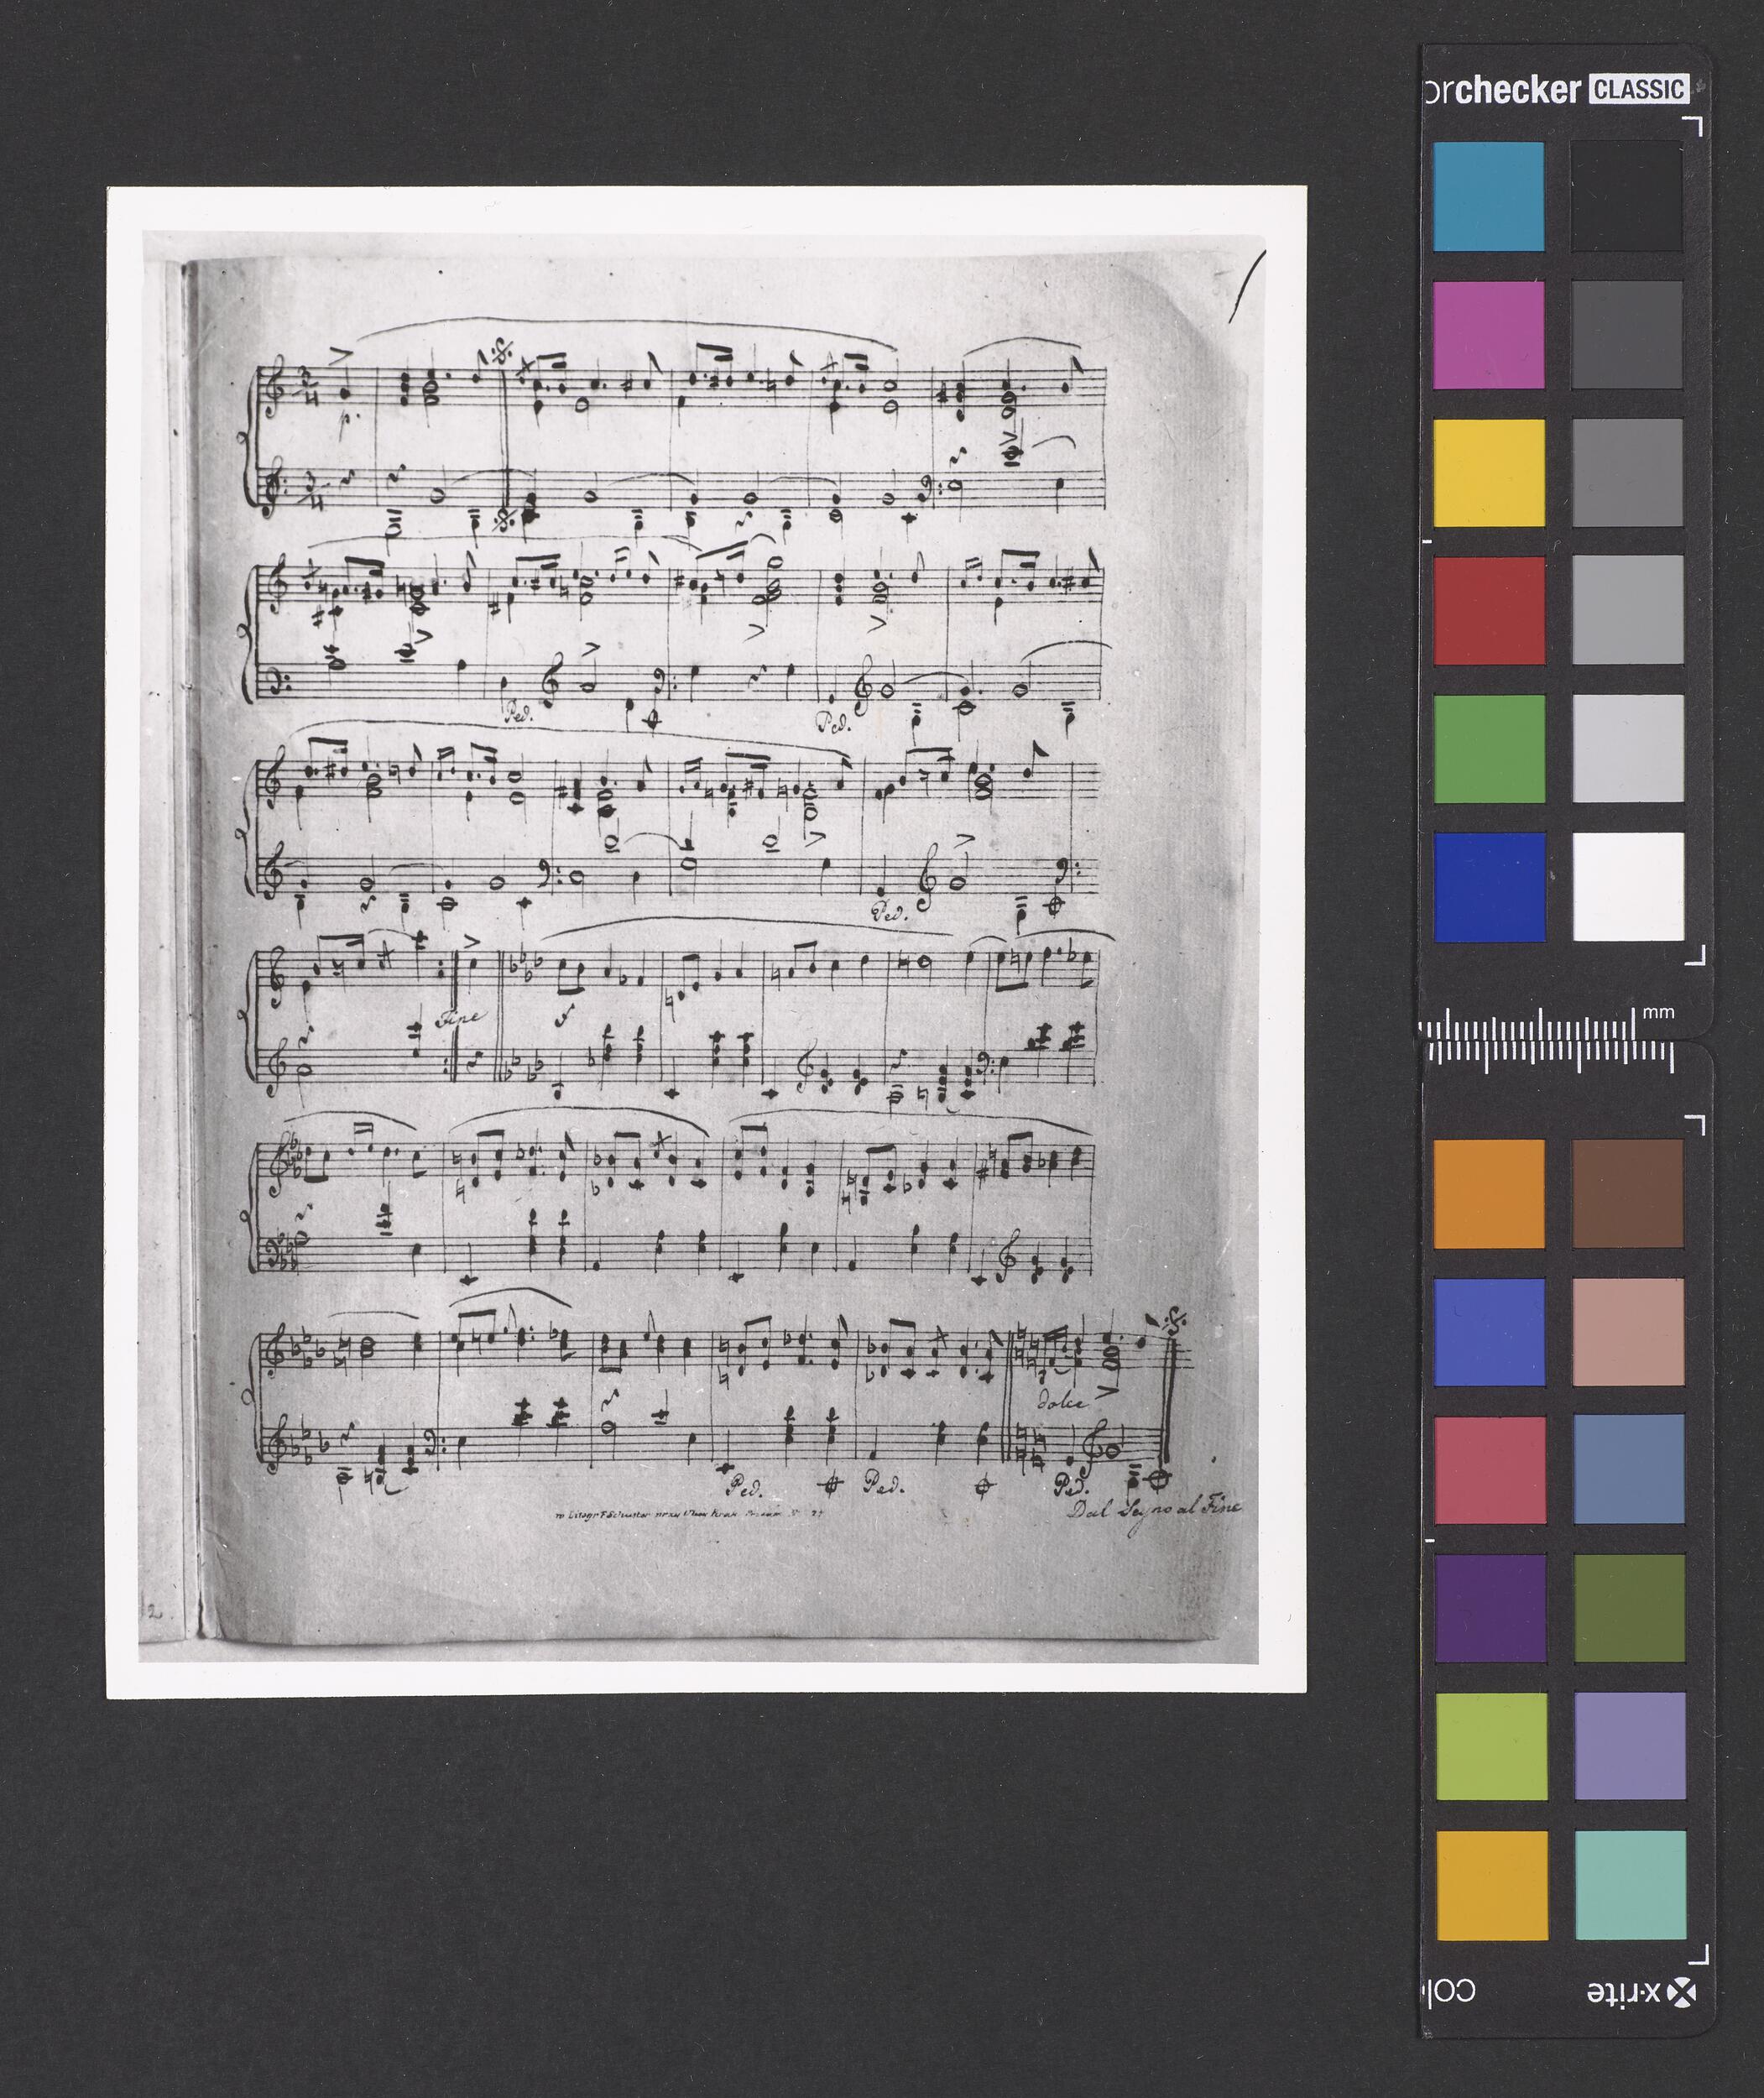 orchecker CLASSIC
p.
Ped.
Ped.
Ped.
Fine
f
mm
dolce
Ped.
Ped.
Ped.
Dal Segno al Fine
2.
col
x-rite